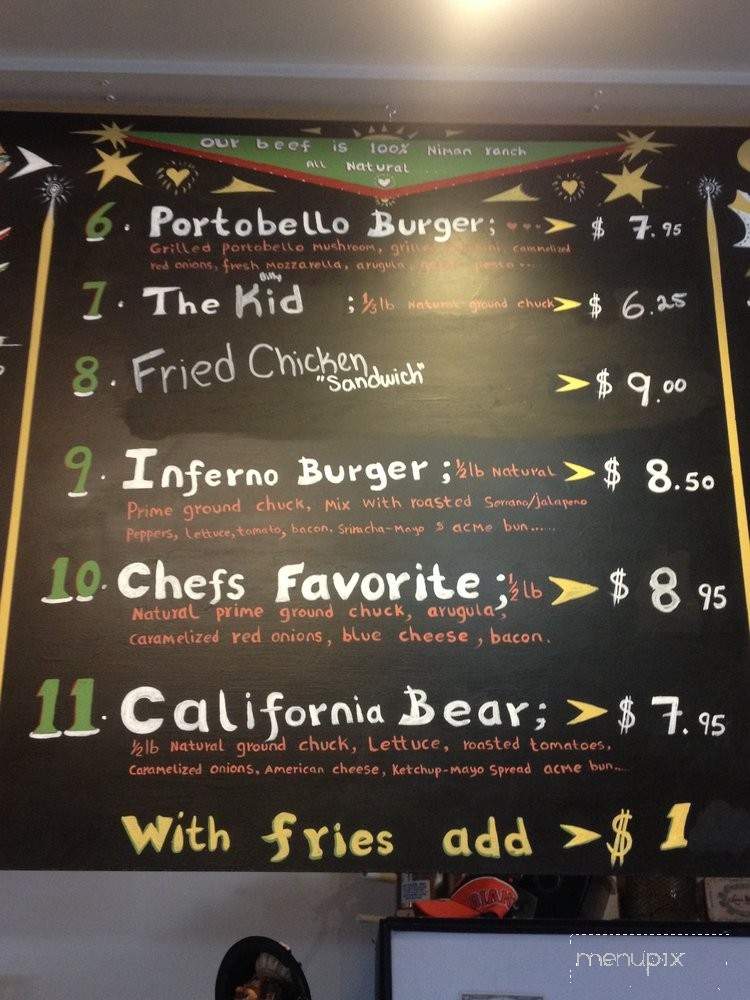 our beef is 100% Niman ranch
All Natural
6. Portobello Burger; $ 7.95
Grilled portobello mushroom, caramelized
red onions, fresh mozzarella, arugula, pesto ...
Billy
7. The Kid ; 1/3 lb Natural ground chuck $ 6.25
8. Fried Chicken
"Sandwich" $ 9.00
9. Inferno Burger ; ½ lb Natural $ 8.50
Prime ground chuck, Mix with roasted Serrano/jalapeno
Peppers, Lettuce, tomato, bacon. Sriracha-Mayo & acme bun.....
10. Chefs Favorite ; ½ lb $ 8 95
Natural prime ground chuck, arugula,
caramelized red onions, blue cheese, bacon.
11. California Bear; $ 7.95
½ lb Natural ground chuck, Lettuce, roasted tomatoes,
Caramelized onions, American cheese, Ketchup-Mayo Spread acme bun....
With fries add $ 1
menupix